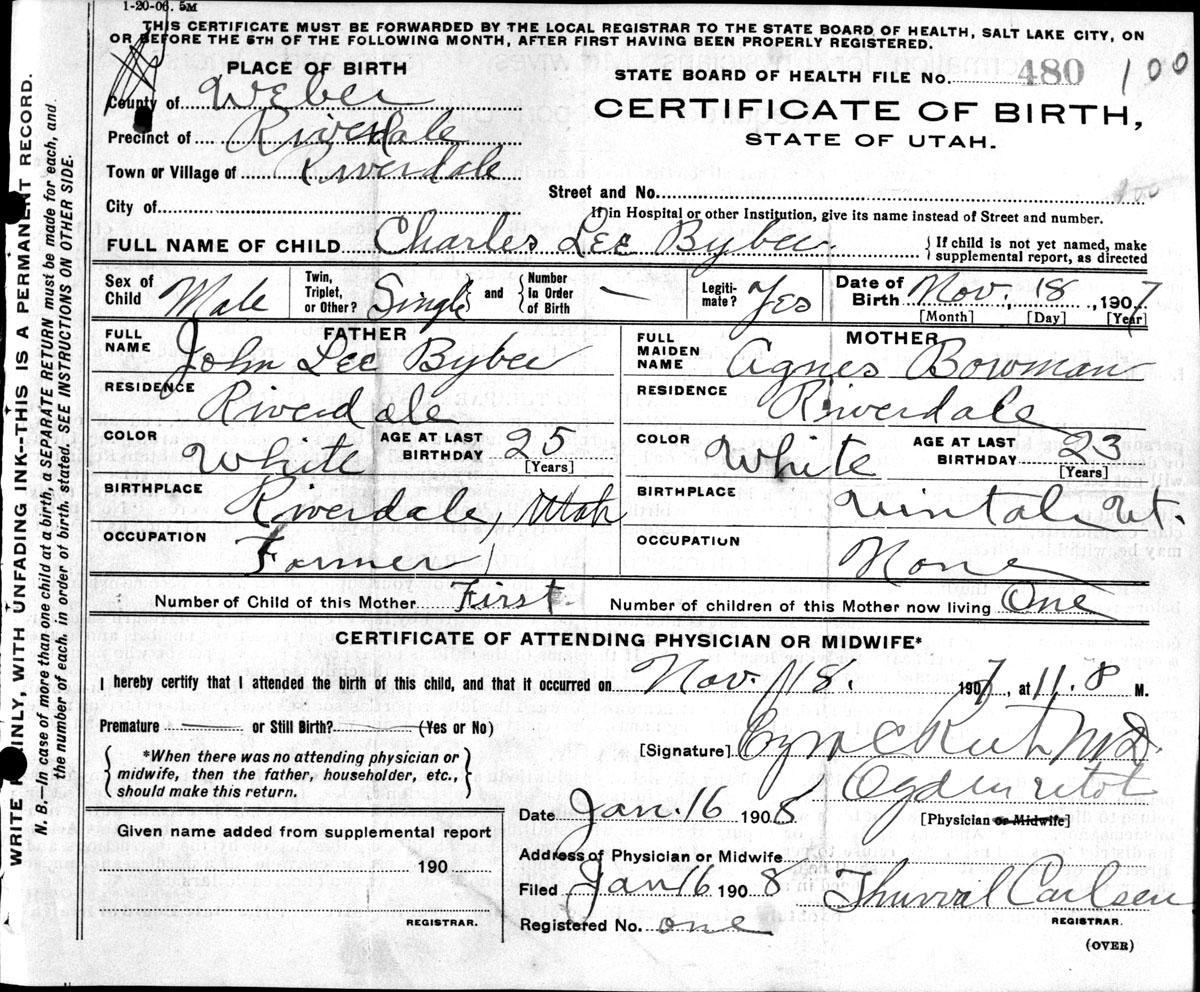 1-20-06. 5M
THIS CERTIFICATE MUST BE FORWARDED BY THE LOCAL REGISTRAR TO THE STATE BOARD OF HEALTH, SALT LAKE CITY, ON
OR BEFORE THE 5TH OF THE FOLLOWING MONTH, AFTER FIRST HAVING BEEN PROPERLY REGISTERED.
PLACE OF BIRTH
STATE BOARD OF HEALTH FILE No. 480 100
County of Weber
CERTIFICATE OF BIRTH,
STATE OF UTAH.
Precinct of Riverdale
Town or Village of Riverdale
Street and No. 100
City of
If in Hospital or other Institution, give its name instead of Street and number.
FULL NAME OF CHILD Charles Lee Bybee { If child is not yet named, make
supplemental report, as directed
Sex of Child Male Twin, Triplet, or Other? Single and { Number In Order of Birth — Legiti-mate? Yes Date of Birth Nov. 18, 1907
[Month] [Day] [Year]
FATHER MOTHER
FULL NAME John Lee Bybee FULL MAIDEN NAME Agnes Bowman
RESIDENCE Riverdale RESIDENCE Riverdale
COLOR White AGE AT LAST BIRTHDAY 25 [Years] COLOR White AGE AT LAST BIRTHDAY 23 [Years]
BIRTHPLACE Riverdale, Utah BIRTHPLACE Ut.
OCCUPATION Farmer OCCUPATION None
Number of Child of this Mother First. Number of children of this Mother now living One
CERTIFICATE OF ATTENDING PHYSICIAN OR MIDWIFE*
I hereby certify that I attended the birth of this child, and that it occurred on Nov. 18. 1907, at 11.8 M.
Premature — or Still Birth? — (Yes or No)
[Signature] M.D.
*When there was no attending physician or
midwife, then the father, householder, etc.,
should make this return.
Ogden
Date Jan. 16 1908 [Physician or Midwife]
Given name added from supplemental report
190
REGISTRAR.
Address of Physician or Midwife
Filed Jan 16 1908 Carlsen
REGISTRAR.
Registered No. one
(OVER)
WRITE PLAINLY, WITH UNFADING INK--THIS IS A PERMANENT RECORD.
N. B.—In case of more than one child at a birth, a SEPARATE RETURN must be made for each, and
the number of each, in order of birth, stated. SEE INSTRUCTIONS ON OTHER SIDE.